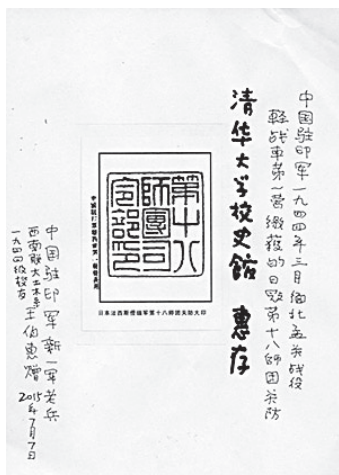 中国驻印军一九四四年三月缅北孟关战役
轻战車第一营缴獲的日寇第十八师团关防
清华大学校史館 惠存
第十八
師團司
令部印
日本法西斯侵缅军第十八师团关防大印
中国驻印军新一军老兵
西南联大土木系
一九四四级校友
王伯惠赠
2015年7月7日